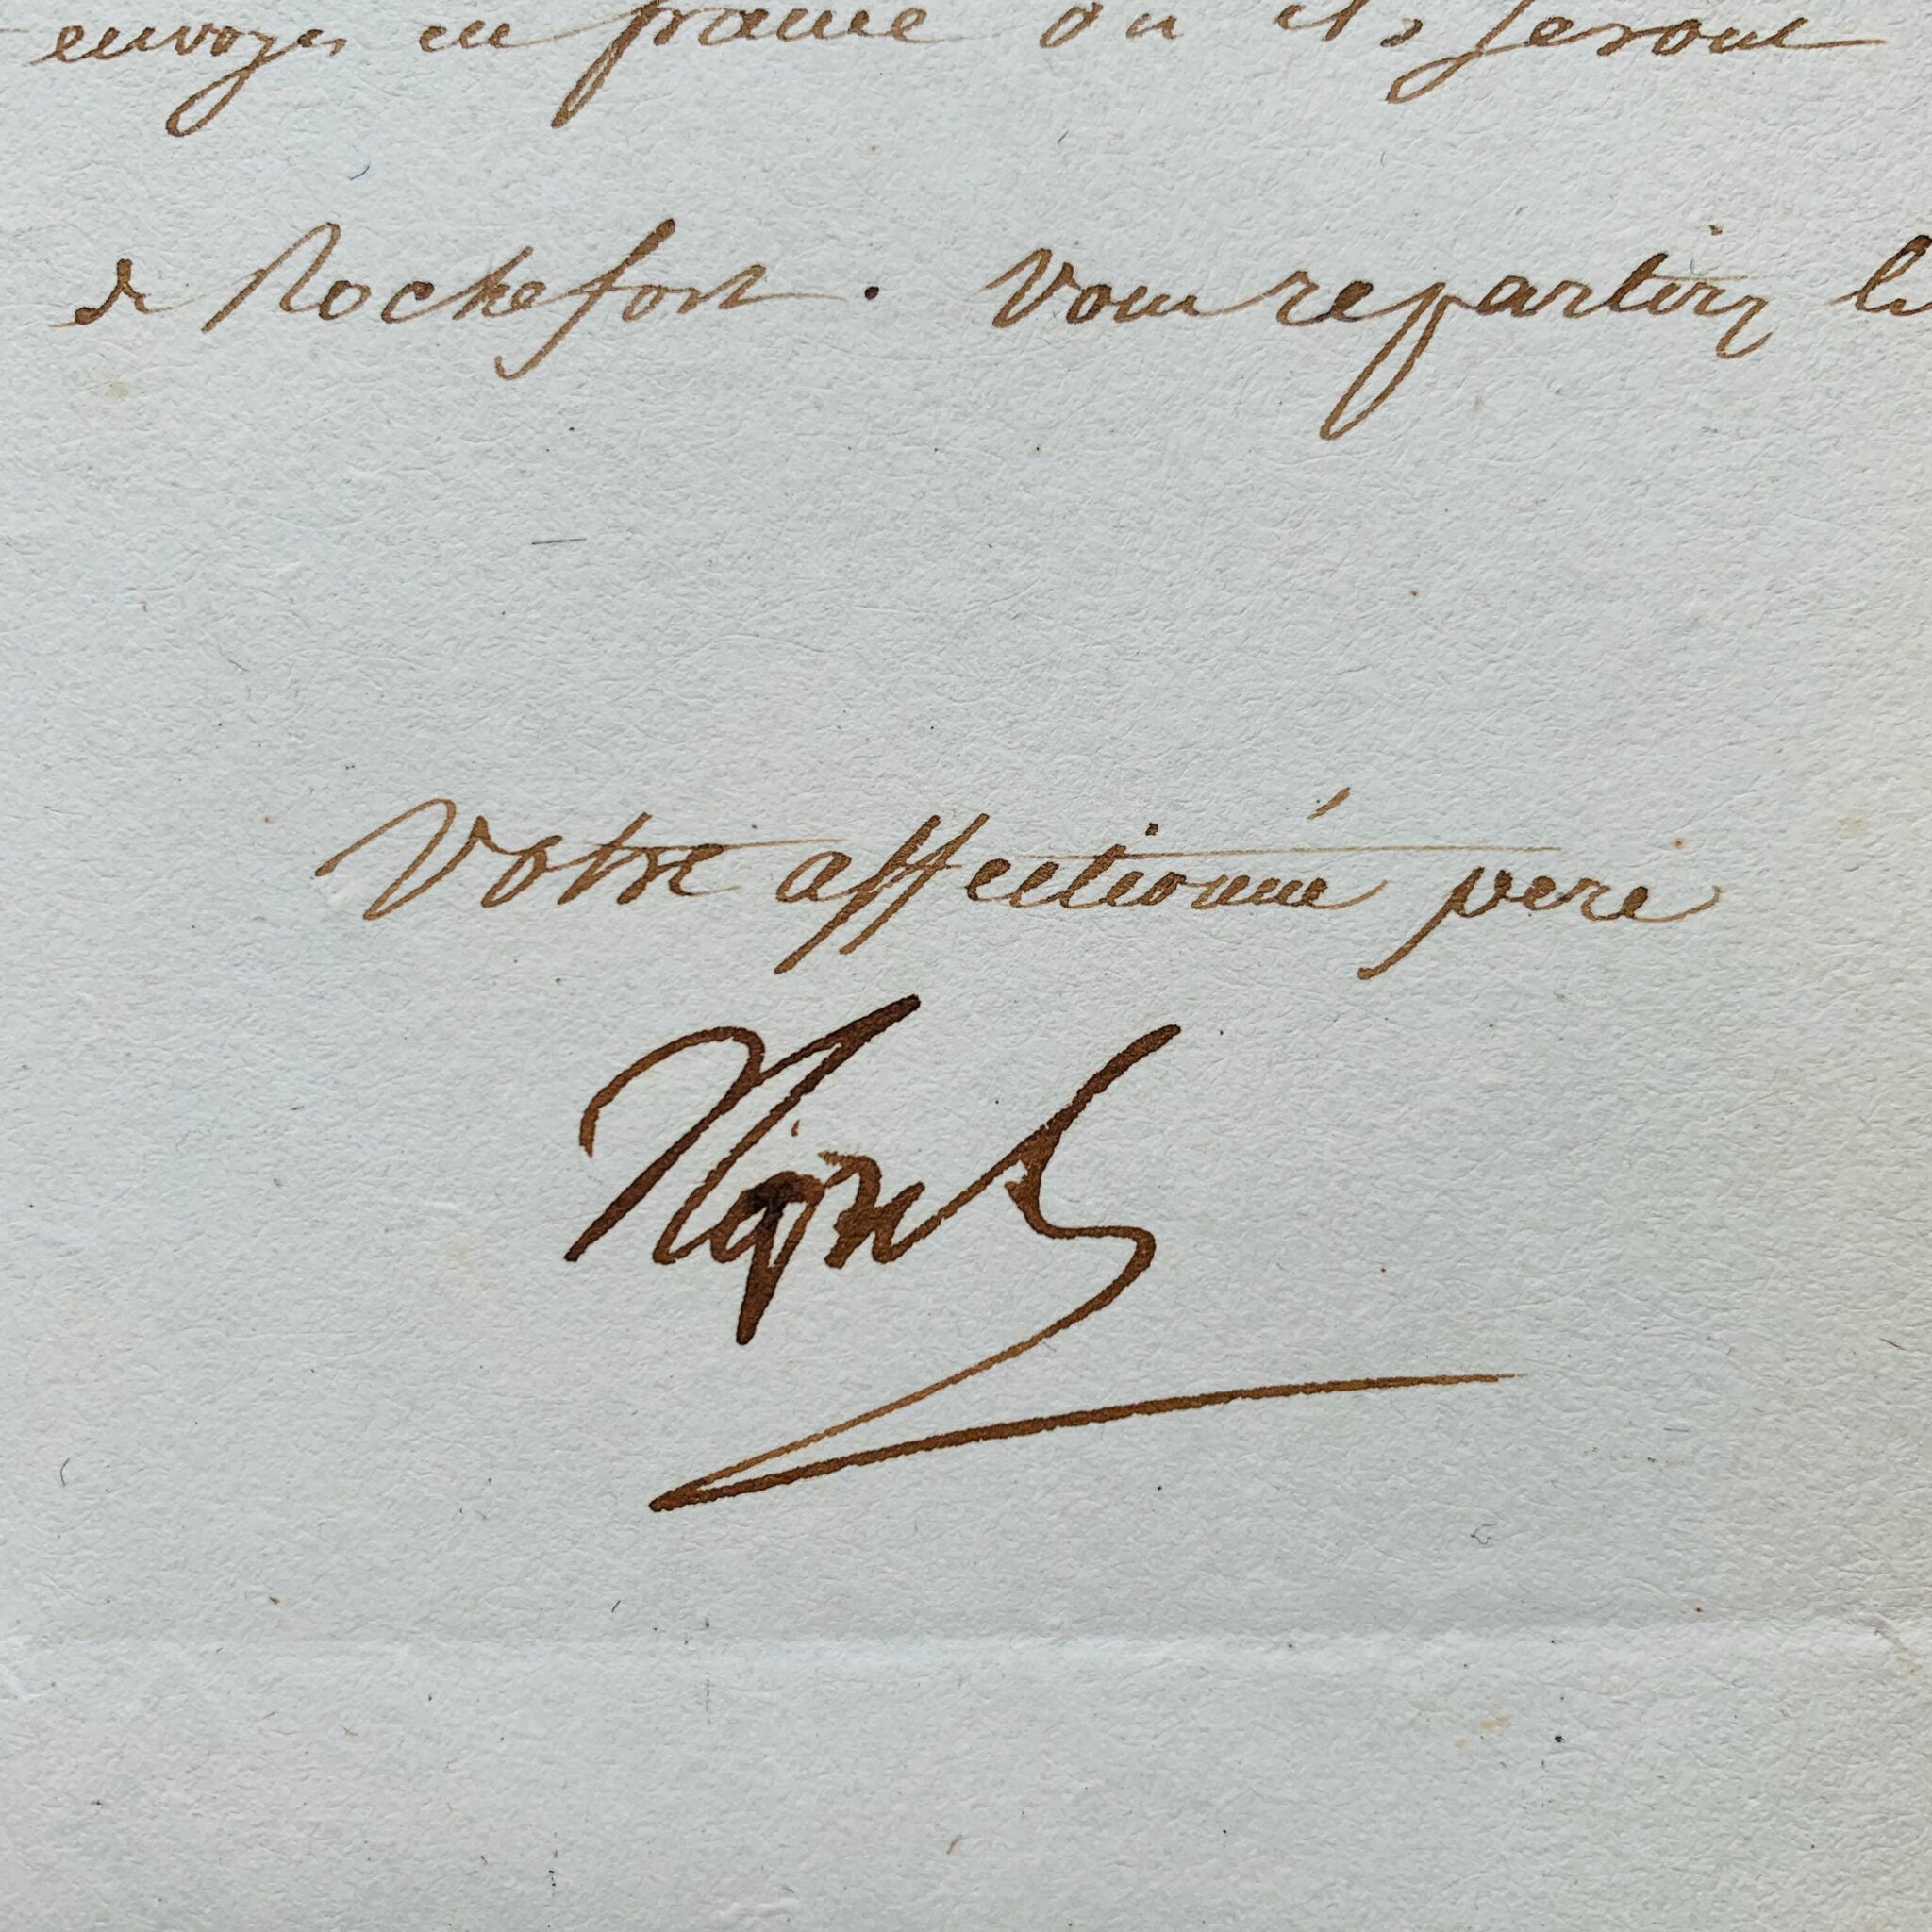 envoyés en france ou ils seront
de Rochefort. Vous repartirez le
Votre affectionné pere